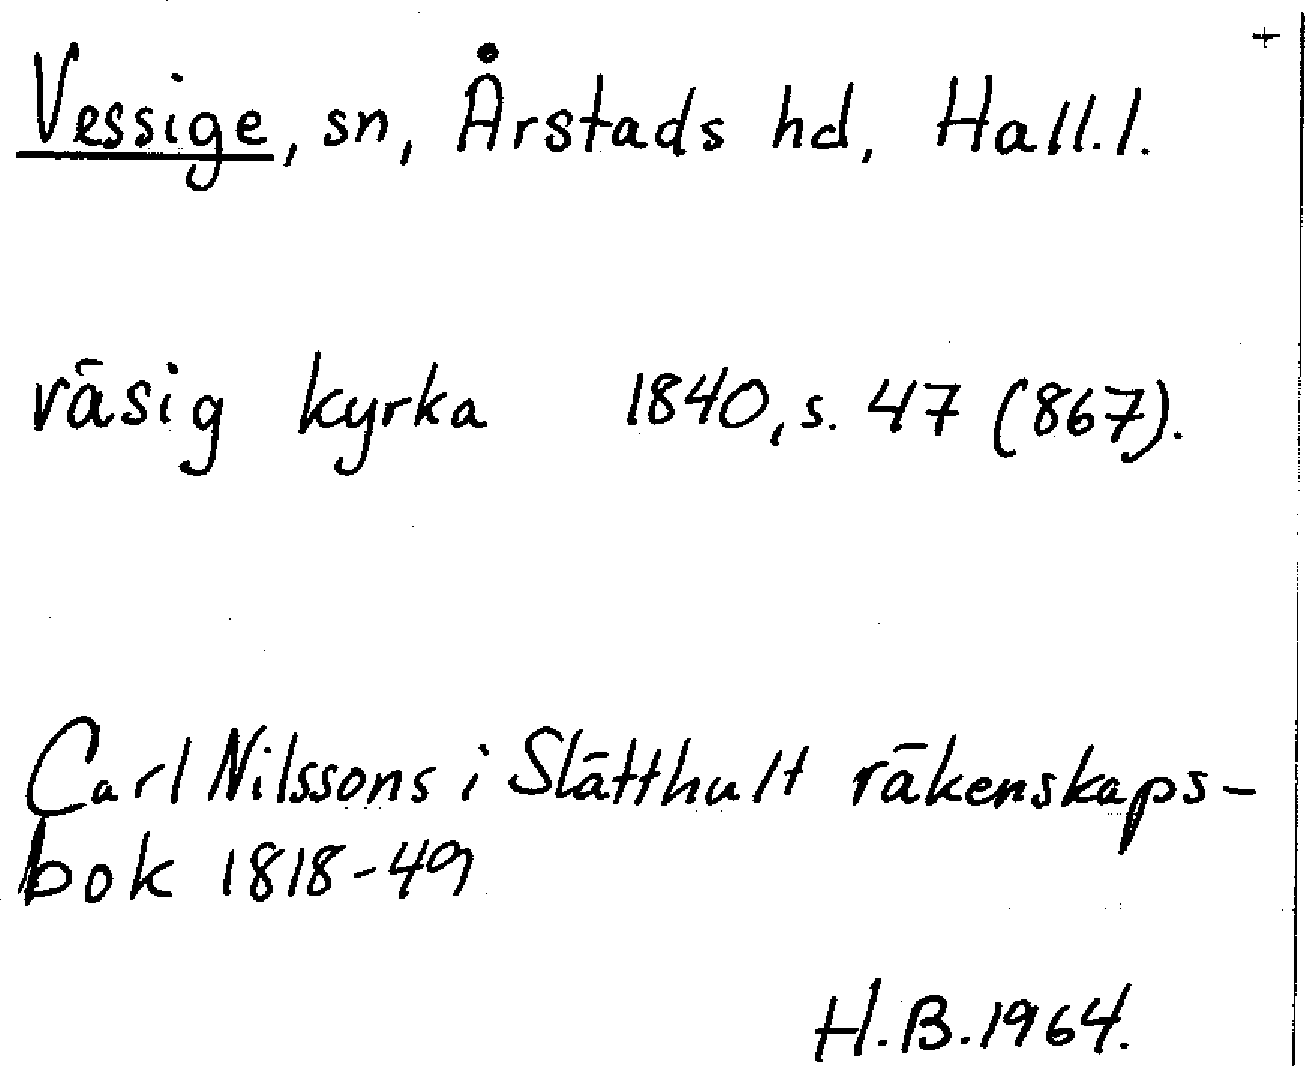 +
Vessige, sn, Årstads hd, Hall.l.
väsig kyrka 1840, s. 47 (867).
Carl Nilssons i Slätthult räkenskaps-
bok 1818-49
H.B.1964.